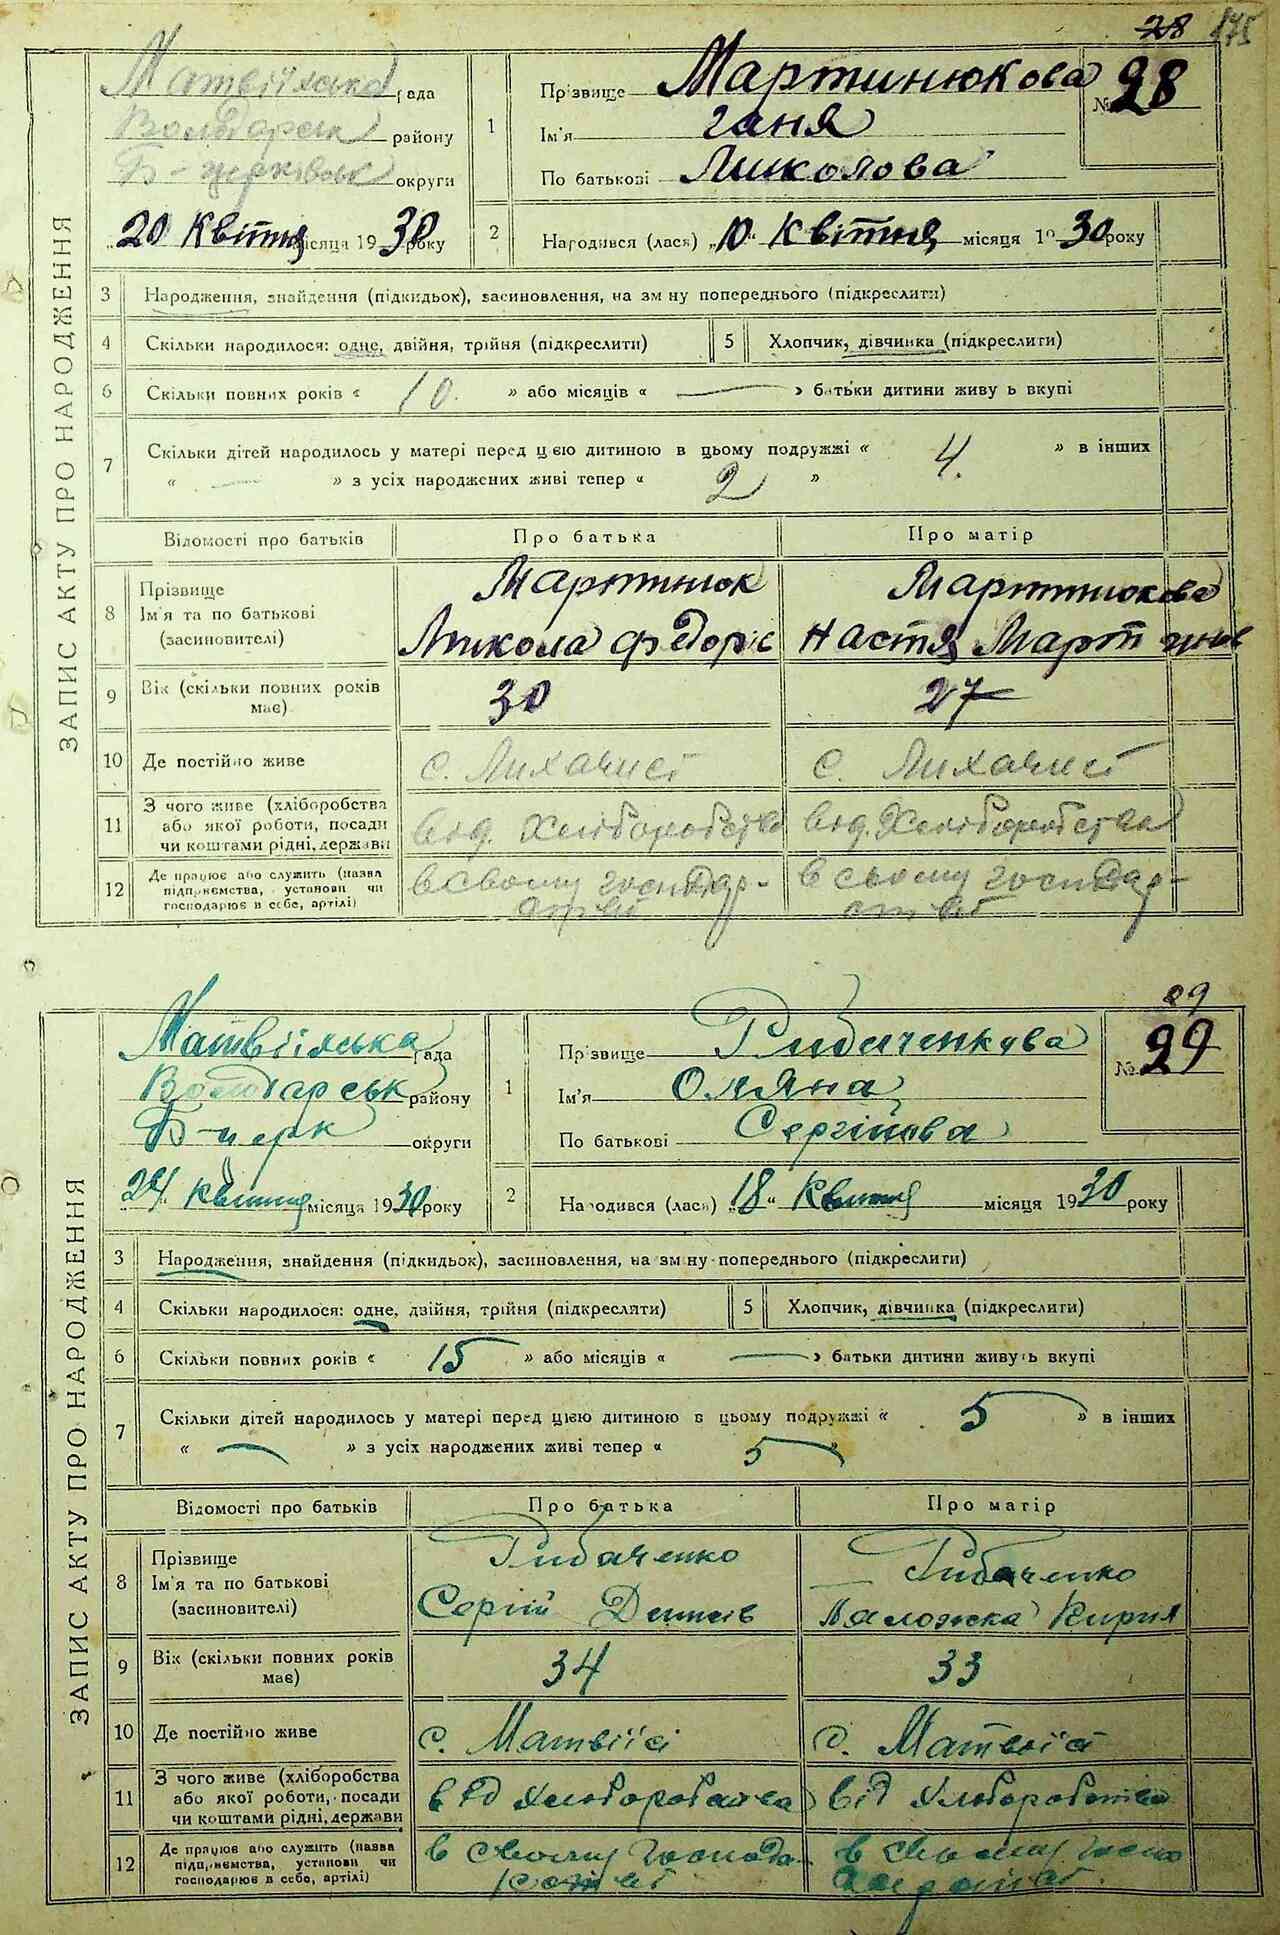 28 175
Матвіїхська рада
Володарськ району
Б-церківськ округи
„20 Квітня місяця 1930 року
ЗАПИС АКТУ ПРО НАРОДЖЕННЯ
1 Прізвище Мартинюкова
№ 28
Ім'я Ганя
По батькові Миколова
2 Народився (лася) „10“ Квітня місяця 1930 року
3 Народження, знайдення (підкидьок), засиновлення, на зміну попереднього (підкреслити)
4 Скільки народилося: одне, двійня, трійня (підкреслити) 5 Хлопчик, дівчинка (підкреслити)
6 Скільки повних років « 10. » або місяців « — » батьки дитини живуть вкупі
7 Скільки дітей народилось у матері перед цією дитиною в цьому подружжі « 4. » в інших
« — » з усіх народжених живі тепер « 2 »
Відомості про батьків Про батька Про матір
8 Прізвище Мартинюк Мартинюкова
Ім'я та по батькові
(засиновителі) Микола Федорів Настя Мартинов
9 Вік (скільки повних років має) 30 27
10 Де постійно живе с. Лихачисі с. Лихачисі
11 З чого живе (хліборобства
або якої роботи, посади
чи коштами рідні, держави
від. Хліборобства від. Хліборобства
12 Де працює або служить (назва
підприємства, установи чи
господарює в себе, артілі)
в свому господар-
стві
в свому господар-
стві
29
Матвіїхська рада
Володарськ району
Б-церк округи
„24“ Квітня місяця 1930 року
ЗАПИС АКТУ ПРО НАРОДЖЕННЯ
1 Прізвище Рибаченкова
№ 29
Ім'я Оляна
По батькові Сергійова
2 Народився (лася) „18“ Квітня місяця 1930 року
3 Народження, знайдення (підкидьок), засиновлення, на зміну попереднього (підкреслити)
4 Скільки народилося: одне, двійня, трійня (підкреслити) 5 Хлопчик, дівчинка (підкреслити)
6 Скільки повних років « 15 » або місяців « — » батьки дитини живуть вкупі
7 Скільки дітей народилось у матері перед цією дитиною в цьому подружжі « 5 » в інших
« — » з усіх народжених живі тепер « 5 »
Відомості про батьків Про батька Про матір
8 Прізвище Рибаченко Рибаченко
Ім'я та по батькові
(засиновителі) Сергій Палажка Кирил
9 Вік (скільки повних років має) 34 33
10 Де постійно живе с. Матвіїсі с. Матвіїсі
11 З чого живе (хліборобства
або якої роботи, посади
чи коштами рідні, держави
від Хліборобства від Хліборобства
12 Де працює або служить (назва
підприємства, установи чи
господарює в себе, артілі)
в свому господа-
рстві
в свому госпо